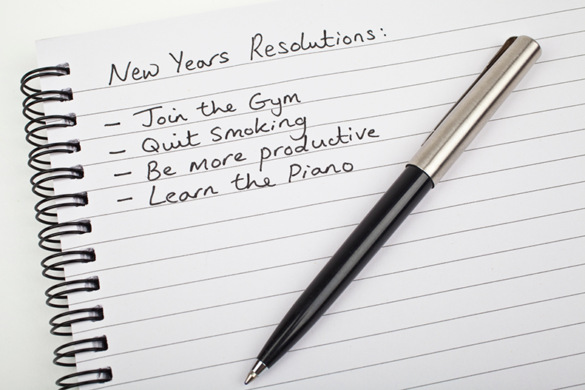 New Years Resolutions:
- Join the Gym
- Quit Smoking
- Be more productive
- Learn the Piano